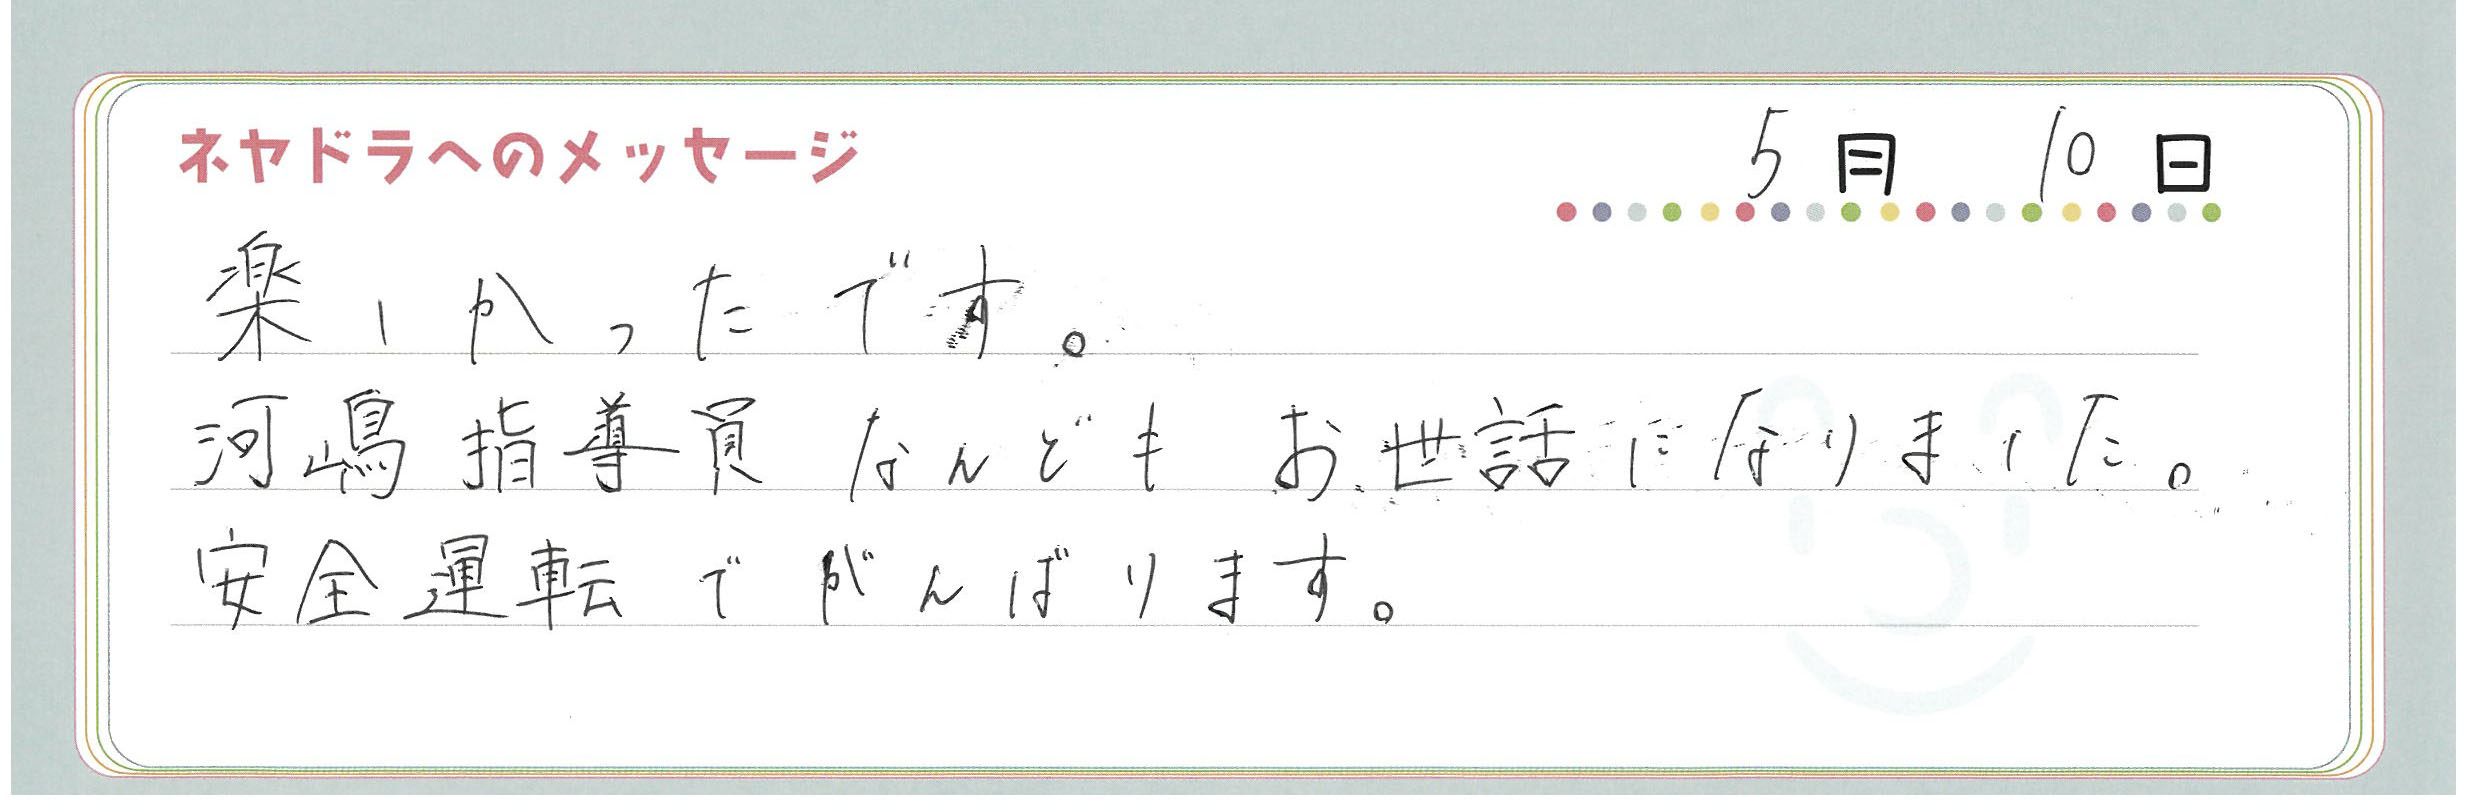 ネヤドラへのメッセージ
5月 10日
楽しかったです。
河嶋指導員 なんども お世話になりました。
安全運転でがんばります。